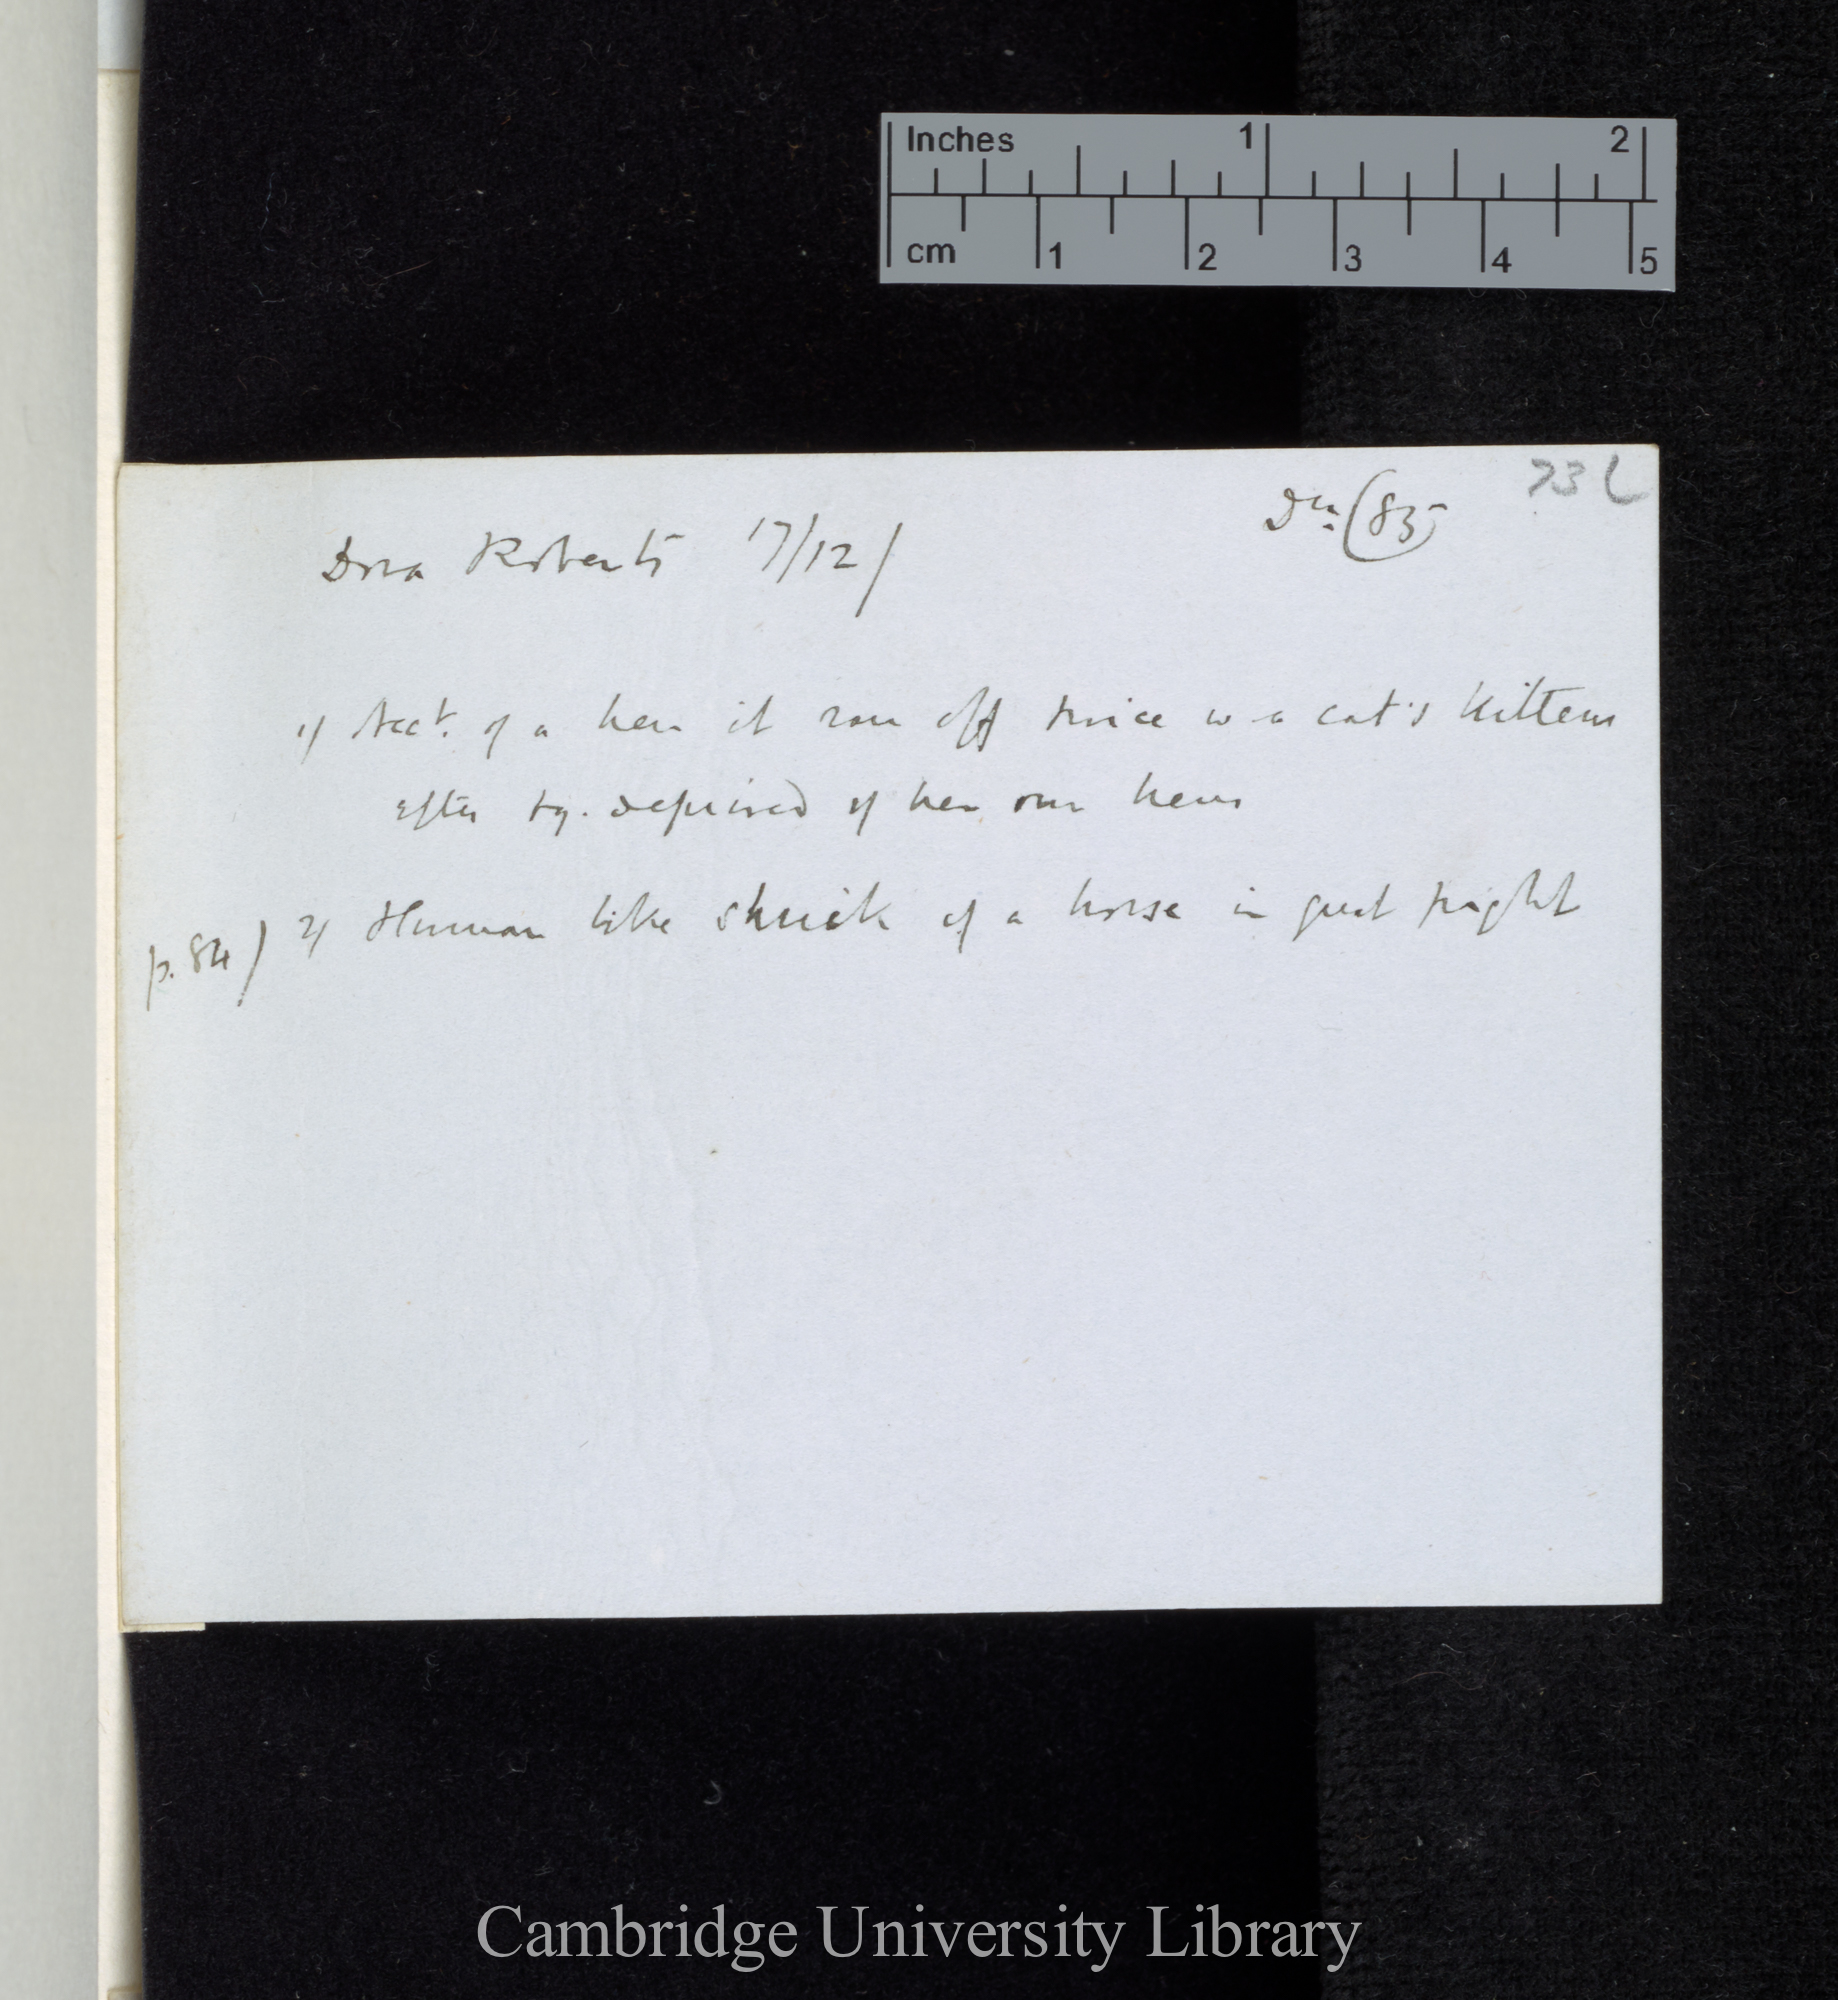 Inches 1 2
cm 1 2 3 4 5
73
(85)
Dora Roberts 17/12/
1/ Acct. of a hen it ran off twice w a cat's kittens
after deprived of her own hens
p. 84) 2/ Human like shriek of a horse in great fright
Cambridge University Library